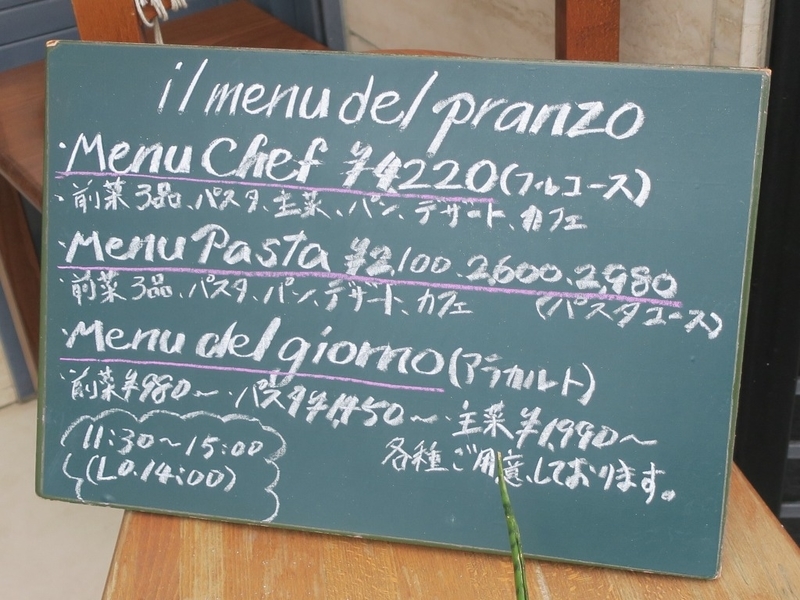 il menu del pranzo
・Menu Chef ¥4220(フルコース)
・前菜3品、パスタ、主菜、パン、デザート、カフェ
・Menu Pasta ¥2,100、2,600、2,980
・前菜3品、パスタ、パン、デザート、カフェ (パスタコース)
・Menu del giorno(アラカルト)
・前菜¥980〜・パスタ¥1,450〜・主菜¥1,990〜
各種ご用意しております。
11:30〜15:00
(LO.14:00)